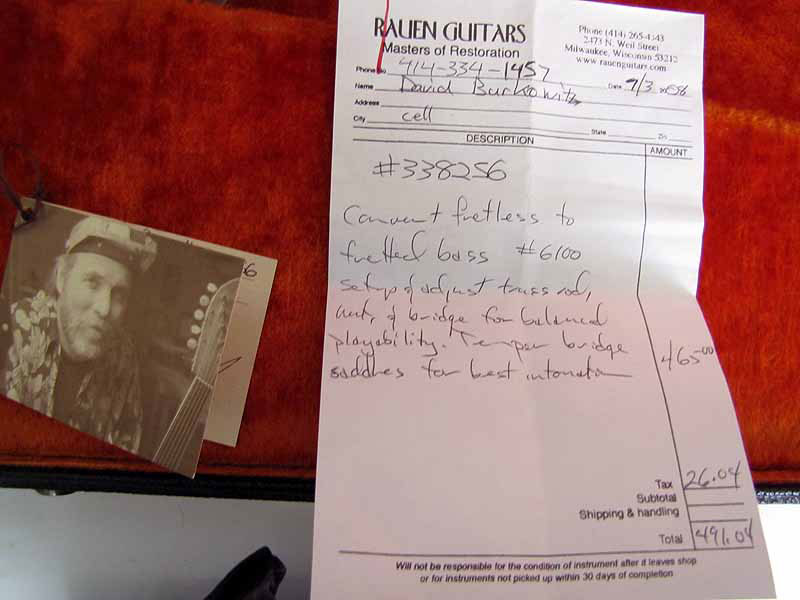 RAUEN GUITARS
Masters of Restoration
Phone (414) 265-4343
2473 N. Weil Street
Milwaukee, Wisconsin 53212
www.rauenguitars.com
Phone No. 414-334-1457
Name David Burkowitz Date 9/3 2008
Address
City cell State Zip
DESCRIPTION AMOUNT
#338256
Convert fretless to
fretted bass #6100
setup & adjust truss rod,
nut, & bridge for balanced
playability. Temper bridge 465.00
saddles for best intonation
Tax 26.04
Subtotal
Shipping & handling
Total 491.04
Will not be responsible for the condition of instrument after it leaves shop
or for instruments not picked up within 30 days of completion